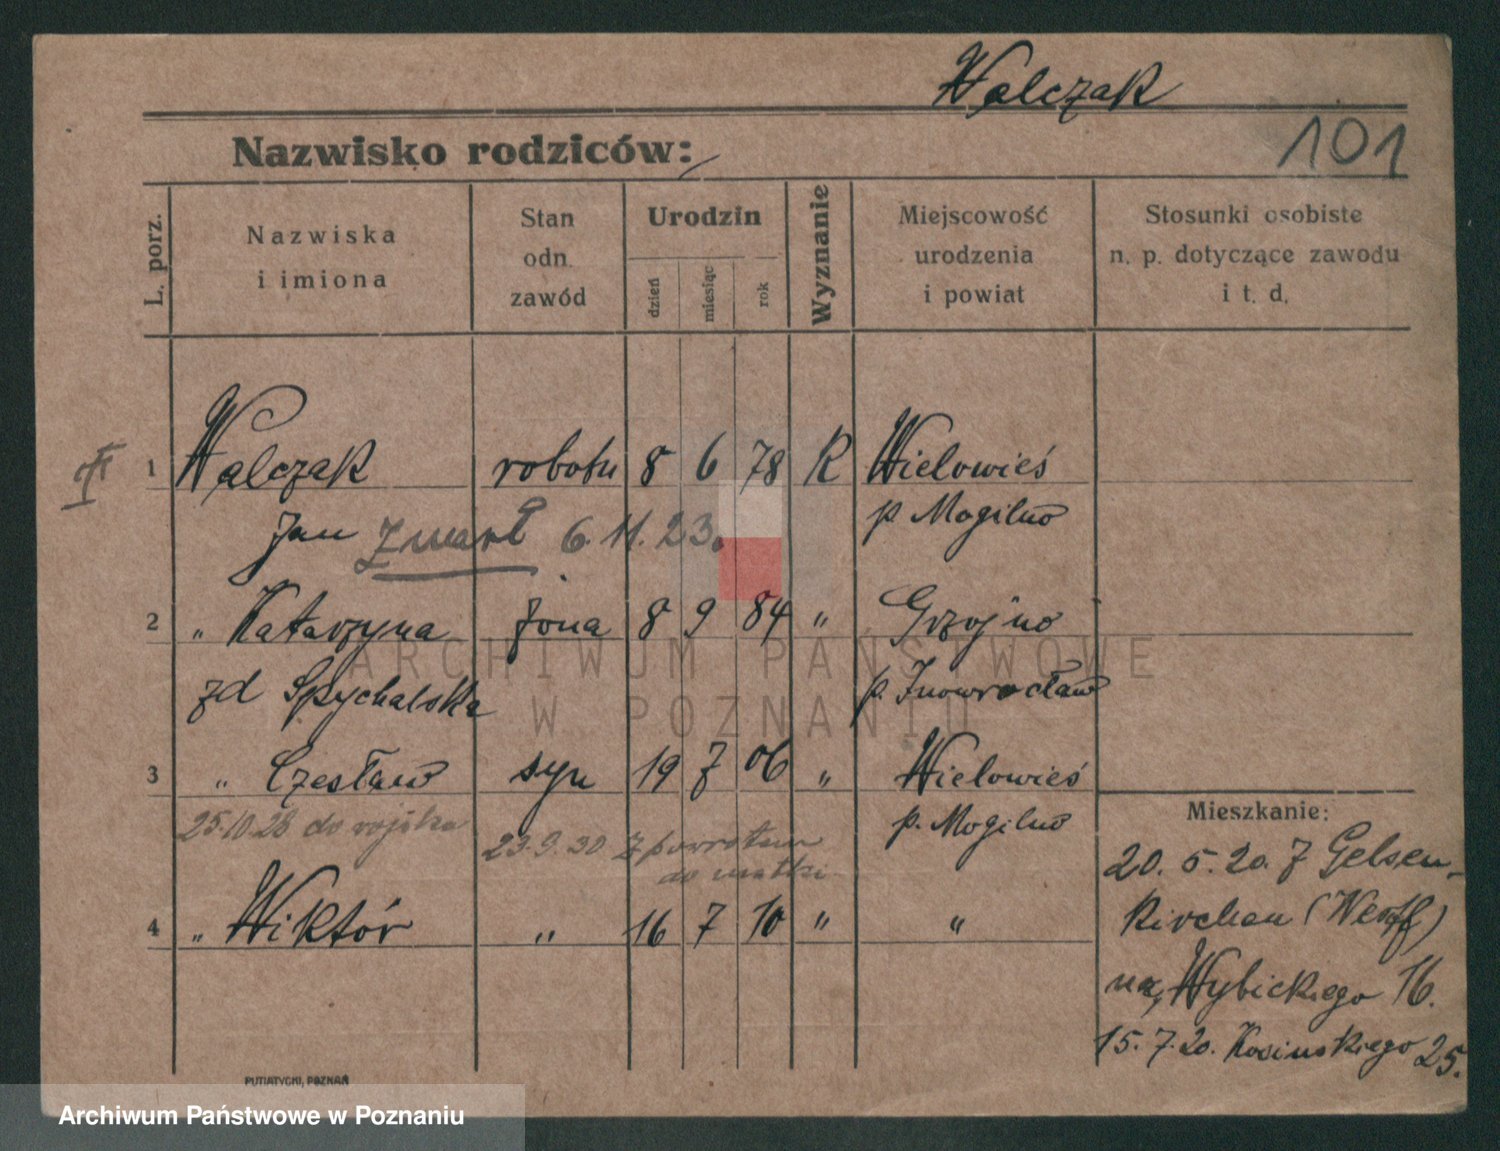 Walczak
101
Nazwisko rodziców:
L. porz.
Nazwiska
i imiona
Stan
odn.
zawód
Urodzin
dzień
miesiąc
rok
Wyznanie
Miejscowość
urodzenia
i powiat
Stosunki osobiste
n. p. dotyczące zawodu
i t. d.
1 Walczak robotn 8 6 78 K Wielowieś
Jan Zmarł 6.11.23. p. Mogilno
2 " Katarzyna żona 8 9 84 " Grzojno
zd Spychalska p. Inowrocław
3 " Czesław syn 19 7 06 " Wielowieś
25.10.28 do wojska p. Mogilno
23.9.30 z powrotem
do matki
4 " Wiktór " 16 7 10 " "
Mieszkanie:
20. 5. 20. z Gelsen-
kirchen (Westf)
na Wybickiego 16.
15. 7. 20. Kosinskiego 25.
PUTIATYCKI, POZNAŃ
ARCHIWUM PAŃSTWOWE
W POZNANIU
Archiwum Państwowe w Poznaniu